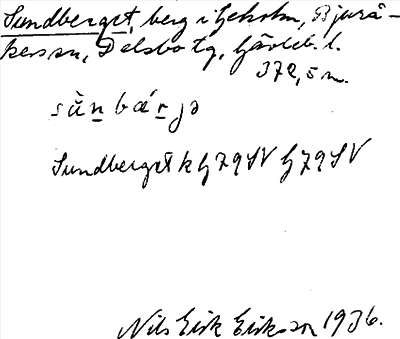 Sundberget, berg i Ljusholm, Bjurå-
kers sn, Delsbo tg, Gävleb. l.
372,5 m.
sùn bærjə
Sundberget k G79SV G79SV
Nils Eirik Eriksson 1936.